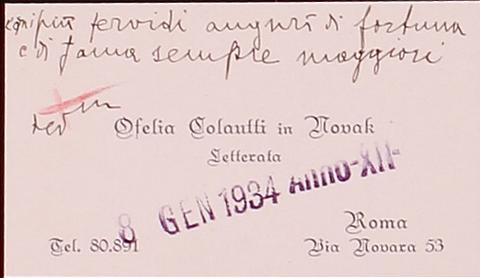 coi più fervidi auguri di fortuna
e di fama sempre maggiori
Ofelia Colautti in Novak
Letterata
8 GEN 1934 Anno-XII-
Roma
Tel. 80.891
Via Novara 53